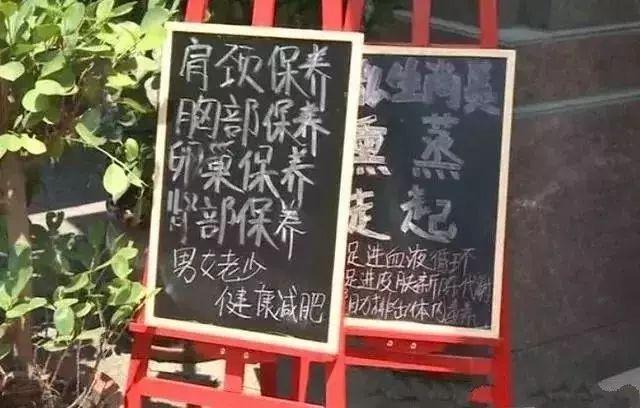 肩颈保养
胸部保养
卵巢保养
肾部保养
男女老少
健康减肥
生尚真
熏蒸
走起
促进血液循环
促进皮肤新陈代谢
助力排出体内毒素